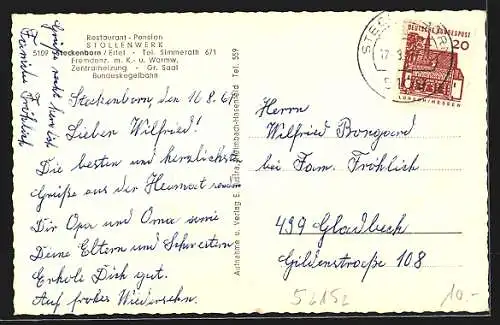 Restaurant - Pension
STOLLENWERK
5109 Steckenborn / Eifel - Tel. Simmerath 671
Fremdenz. m. K.- u. Warmw.
Zentralheizung. - Gr. Saal
Bundeskegelbahn
Grüße recht herzlich
Familie Fröhlich
Steckenborn, den 16.8.6
Lieben Wilfried!
Die besten und herzlichsten
Grüße aus der Heimat
Dir Opa und Oma sowie
Deine Eltern und Schwestern
Erhole Dich gut.
Auf frohes Wiedersehn.
Aufnahme u. Verlag E. Hasenfeld Tel. 559
DEUTSCHE BUNDESPOST
20
LORSCH/HESSEN
17.8.
Herrn
Wilfried Bongard
bei Fam. Fröhlich
439 Gladbeck
Gildenstraße 108
52152
10.-